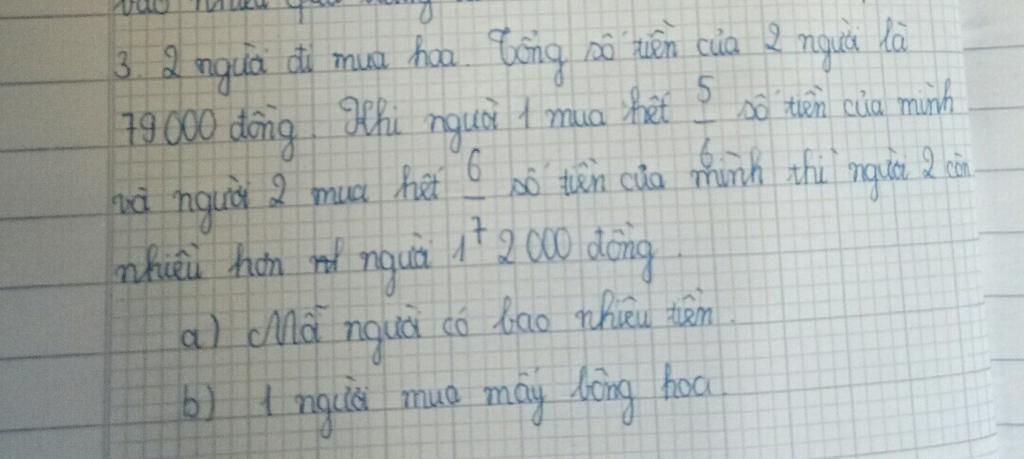 3. 2 người đi mua hoa. Tổng số tiền của 2 người là
79000 đồng. Khi người 1 mua hết 5/6 số tiền của mình
và người 2 mua hết 6/7 số tiền của mình thì người 2 còn
nhiều hơn người 1 2000 đồng.
a) Mỗi người có bao nhiêu tiền.
b) 1 người mua mấy bông hoa